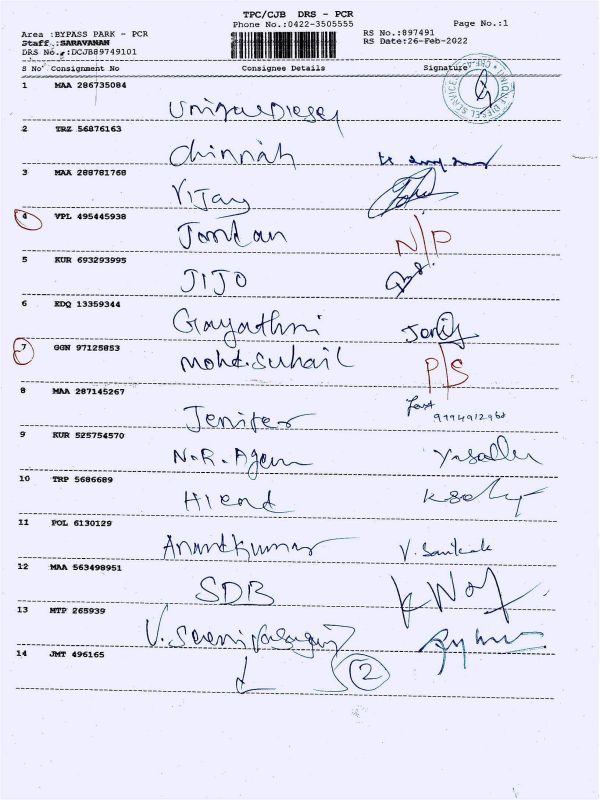 TPC/CJB DRS - PCR
Phone No.:0422-3505555
Page No.:1
Area :BYPASS PARK - PCR
RS No.:897491
Staff.:SARAVANAN
RS Date:26-Feb-2022
DRS No.:DCJB89749101
S No Consignment No Consignee Details Signature
UNIQUE DIESEL SERVICES
1 MAA 286735084
Unique Diesel
2 TRZ 56876163
Chinnah
3 MAA 288781768
Vijay
4 VPL 495445938
N/P
5 KUR 693293995
JIJO
6 EDQ 13359344
Gayathri
7 GGN 97125853
Mohd.Suhail P/S
8 MAA 287145267
Jenifer
9 KUR 525754570
N.R. Agen
10 TRP 5686689
11 POL 6130129
Anandkumar
12 MAA 563498951
SDB
13 MTP 265939
14 JMT 496165
2